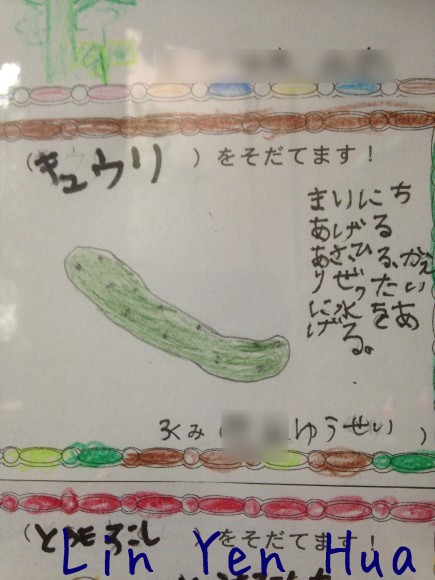 (キュウリ)をそだてます!
まいにち
あげる
あさ、ひる、かえ
りぜったい
に水をあ
げる。
3くみ( ゆうせい )
(とうもろこし)をそだてます!
Lin Yen Hua